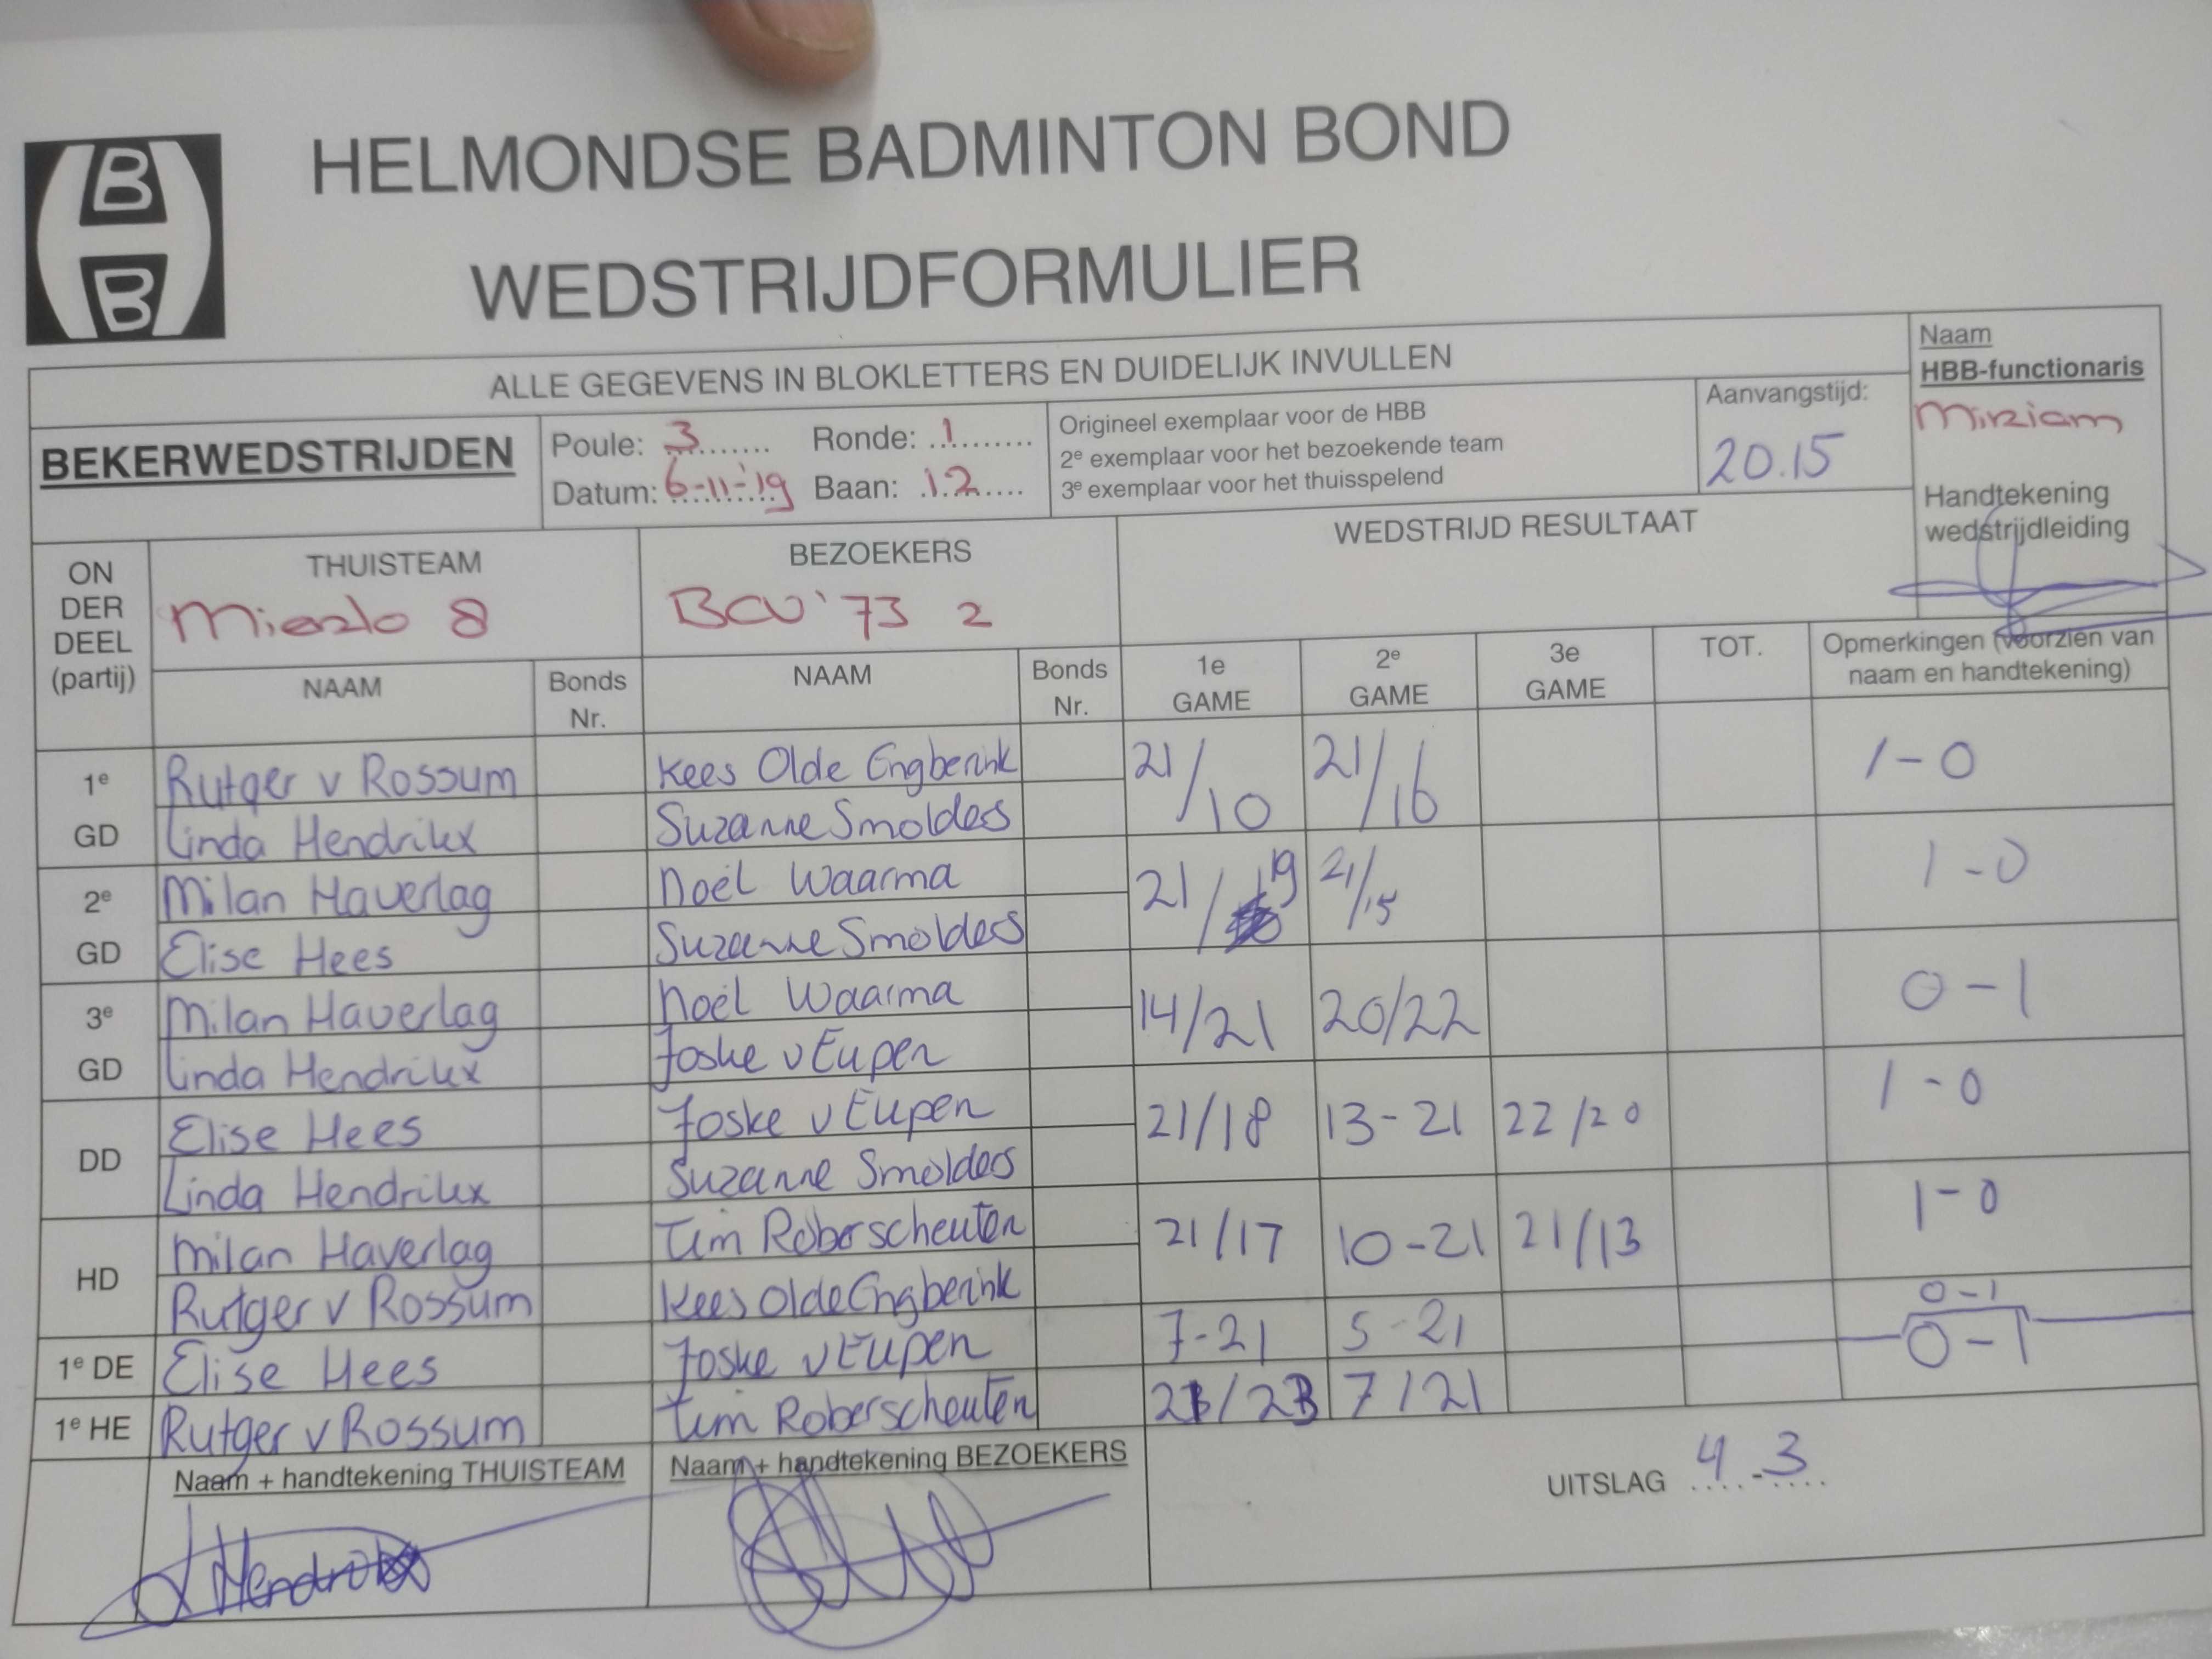 HELMONDSE BADMINTON BOND
WEDSTRIJDFORMULIER
ALLE GEGEVENS IN BLOKLETTERS EN DUIDELIJK INVULLEN
Naam
HBB-functionaris
Miriam
Handtekening
wedstrijdleiding
BEKERWEDSTRIJDEN
Poule: 3 Ronde: 1
Datum: 6-11-'19 Baan: 12
Origineel exemplaar voor de HBB
2e exemplaar voor het bezoekende team
3e exemplaar voor het thuisspelend
Aanvangstijd:
20.15
ON
DER
DEEL
(partij)
THUISTEAM
Mierlo 8
BEZOEKERS
BCV '73 2
WEDSTRIJD RESULTAAT
NAAM Bonds Nr. NAAM Bonds Nr. 1e GAME 2e GAME 3e GAME TOT. Opmerkingen (voorzien van naam en handtekening)
1e Rutger v Rossum Kees Olde Engberink 21/10 21/16 1-0
GD Linda Hendrikx Suzanne Smolders
2e Milan Haverlag Noël Waarma 21/19 21/15 1-0
GD Elise Hees Suzanne Smolders
3e Milan Haverlag Noël Waarma 14/21 20/22 0-1
GD Linda Hendrikx Joske v Eupen
DD Elise Hees Joske v Eupen 21/18 13-21 22/20 1-0
Linda Hendrikx Suzanne Smolders
HD Milan Haverlag Tim Roberscheuten 21/17 10-21 21/13 1-0
Rutger v Rossum Kees Olde Engberink
1e DE Elise Hees Joske v Eupen 7-21 5-21 0-1
1e HE Rutger v Rossum Tim Roberscheuten 7/21 0-1
Naam + handtekening THUISTEAM
Naam + handtekening BEZOEKERS
UITSLAG 4-3